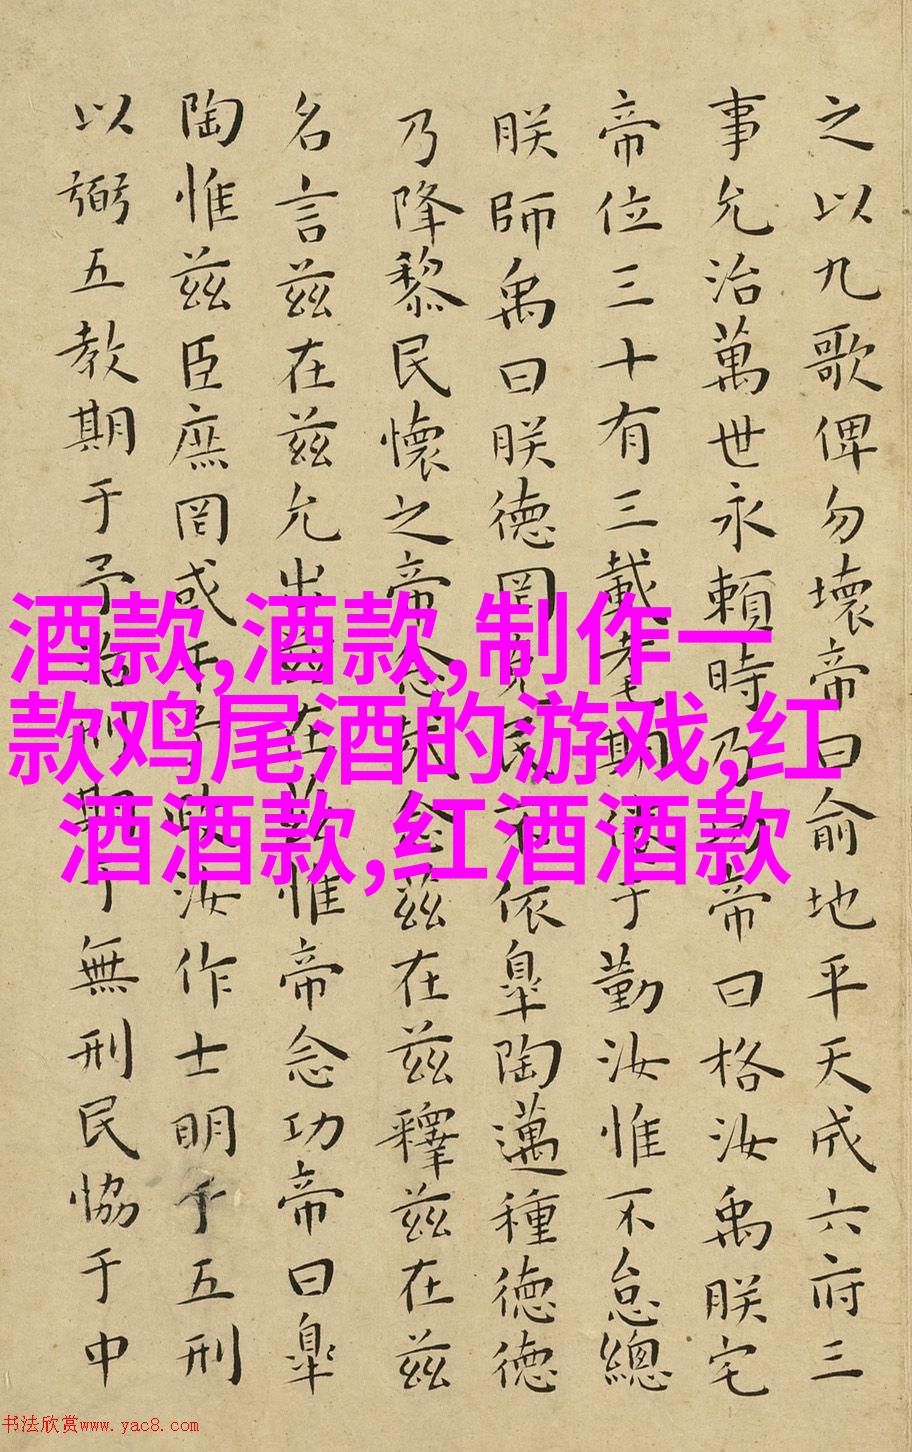 之以九歌俾勿壞帝曰俞地平天成六府三
事允治萬世永賴時乃功帝曰格汝禹朕宅
帝位三十有三載耄期倦于勤汝惟不怠總
朕師禹曰朕德罔克民不依皐陶邁種德德
乃降黎民懷之帝念哉念茲在茲釋茲在茲
名言茲在茲允出茲在茲惟帝念功帝曰皐
陶惟茲臣庶罔或干予政汝作士明于五刑
以弼五教期于予治刑期于無刑民恊于中
酒款,酒款,制作一
款鸡尾酒的游戏,红
酒酒款,红酒酒款
书法欣赏www.yac8.com